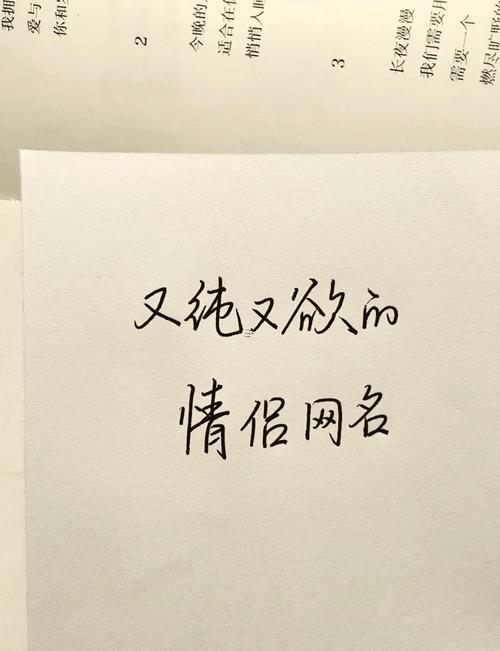 我拥
爱与
你和
2
今晚的
适合在
悄悄入
3
长夜漫漫
我们需要
需要一个
燃尽旷野
又纯又欲的
情侣网名